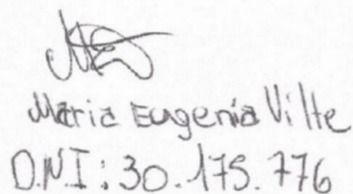 Maria Eugenia Vilte
D.N.I: 30.175.776